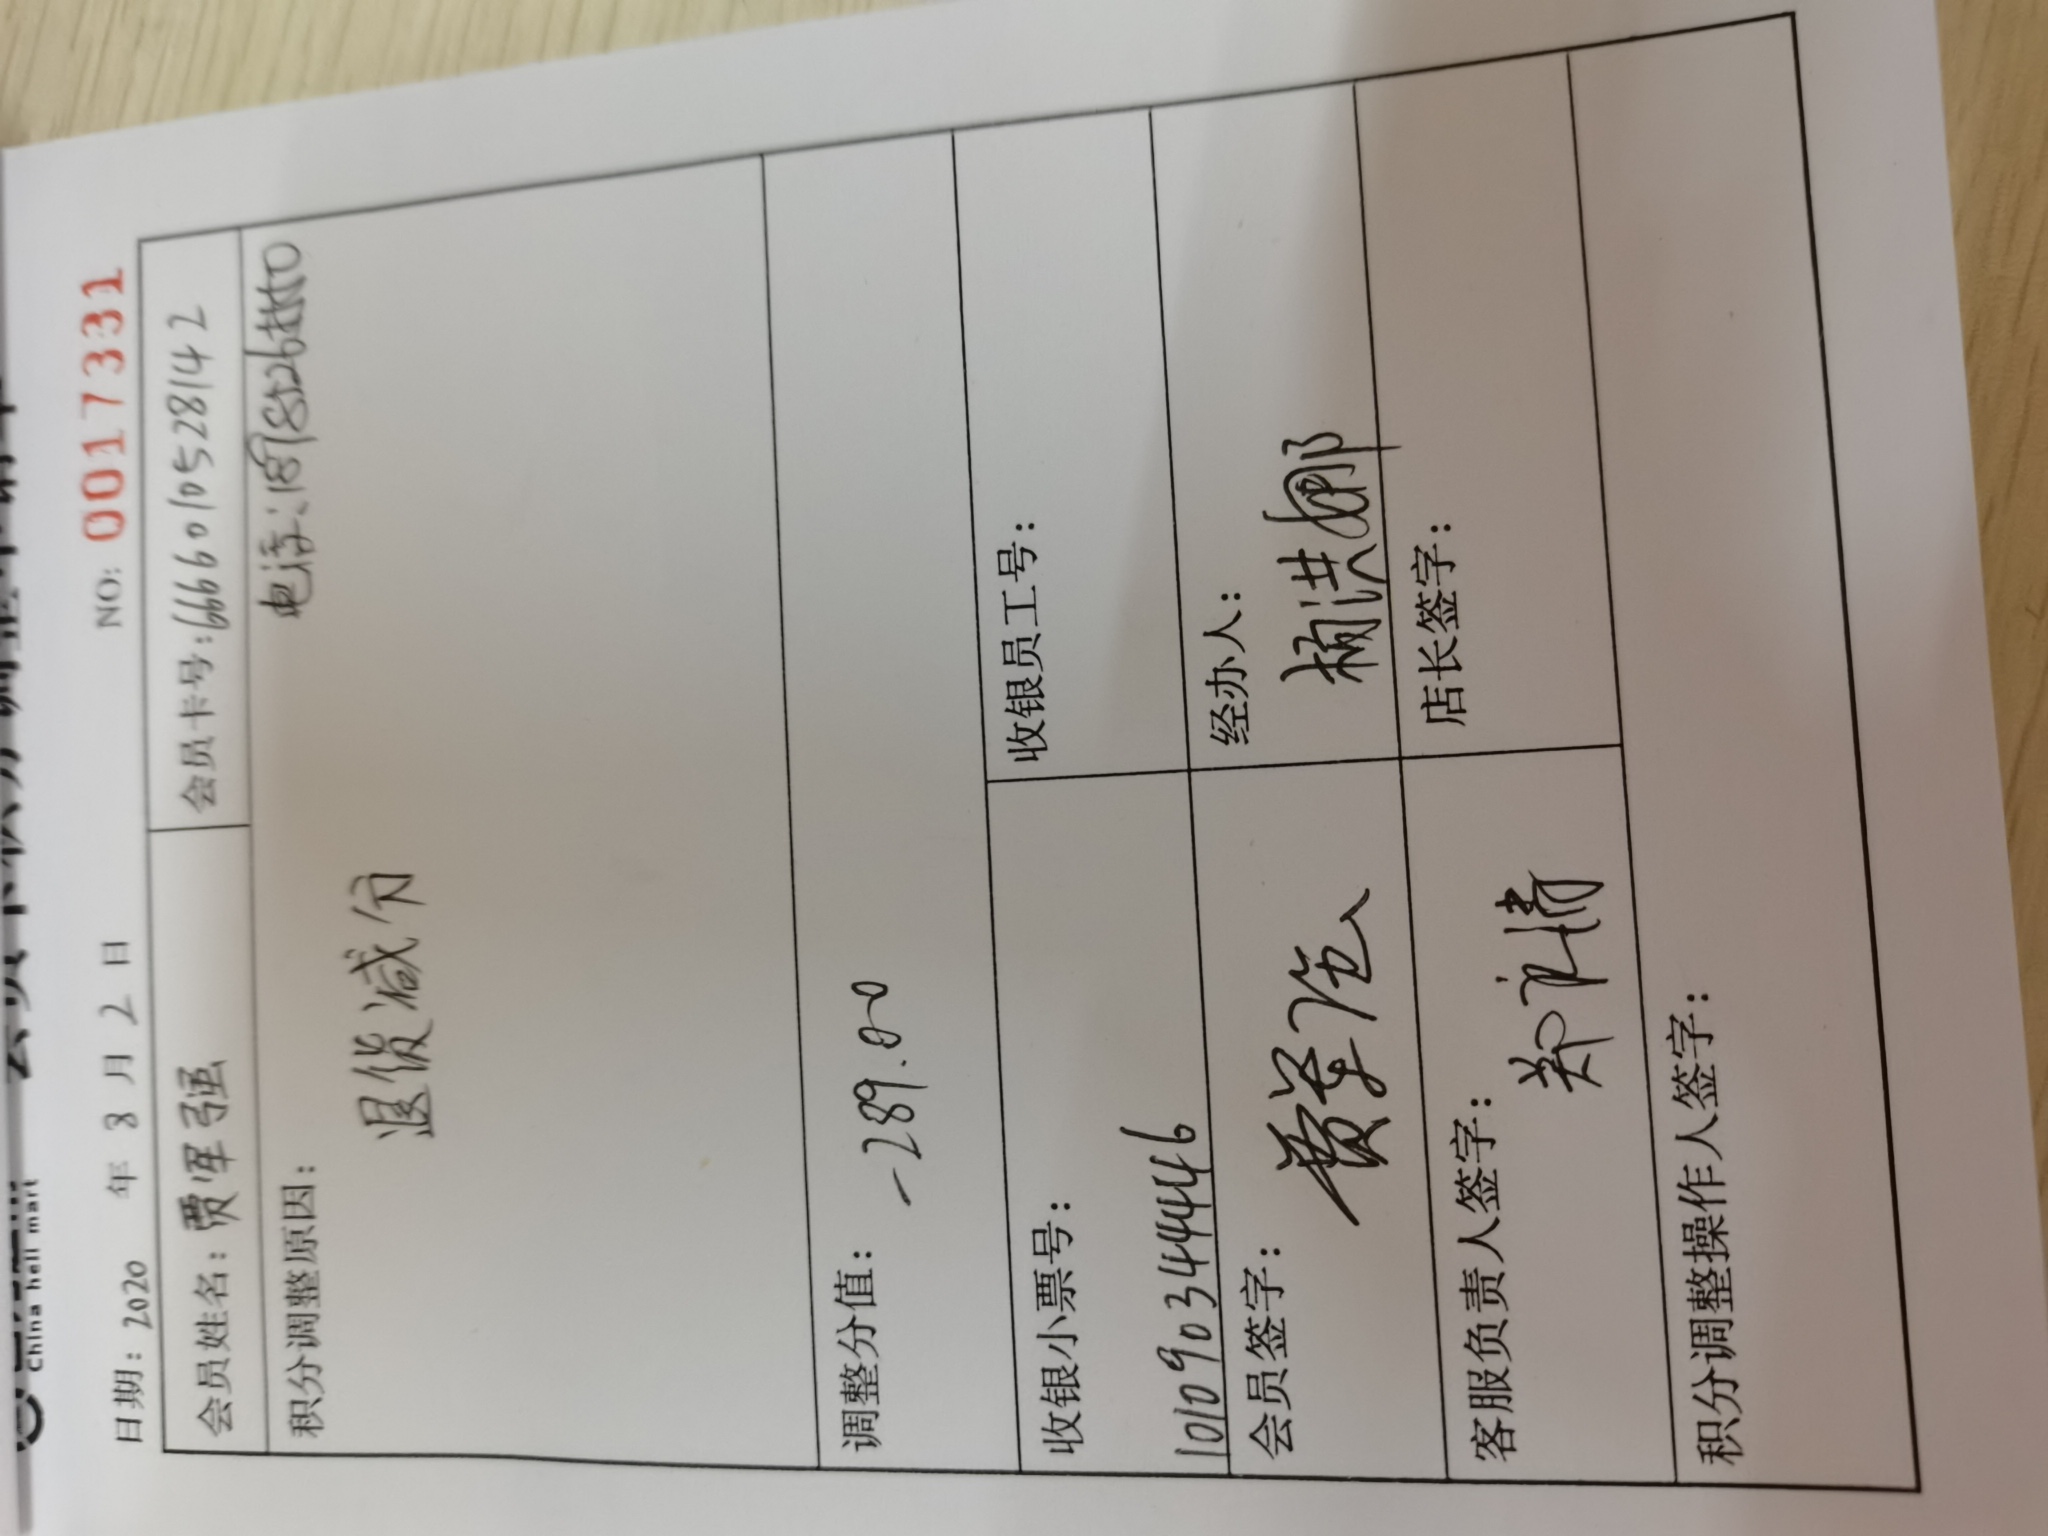 China hell mart
日期：2020 年 8 月 2 日 NO: 0017331
会员姓名：贾军强 会员卡号：6666010528142
积分调整原因： 电话：
退货减分
调整分值： -289.00
收银小票号： 收银员工号：
10109034446
会员签字： 经办人：
客服负责人签字： 店长签字：
积分调整操作人签字：